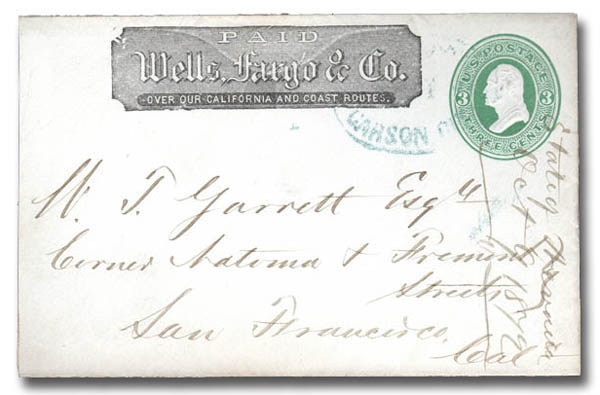 PAID
Wells, Fargo & Co.
OVER OUR CALIFORNIA AND COAST ROUTES.
U.S. POSTAGE
3 3
THREE CENTS
CARSON
W. T. Garrett Esq
Corner Natoma & Fremont
Streets
San Francisco
Cal
Oct
1872